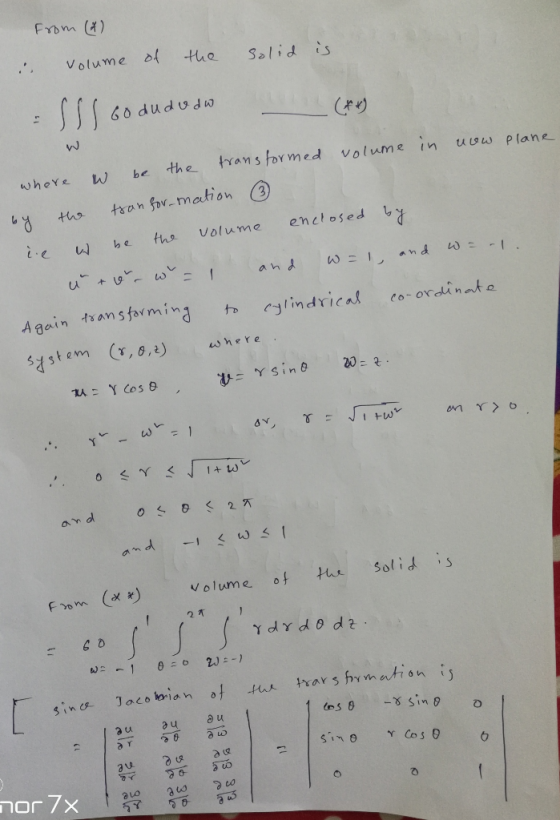 From (*)
∴ volume of the solid is
= ∫∫∫_W 60 du dv dw ——— (**)
where W be the transformed volume in uvw plane
by the transfor-mation ③
i.e W be the volume enclosed by
u² + v² - w² = 1 and w = 1, and w = -1.
Again transforming to cylindrical co-ordinate
system (r, θ, z) where.
u = r cos θ, v = r sin θ w = z.
∴ r² - w² = 1 or, r = √1+w² as r > 0.
∴ 0 ≤ r ≤ √1+w²
and 0 ≤ θ ≤ 2π
and -1 ≤ w ≤ 1
From (**) volume of the solid is
= 60 ∫_{w=-1}^{1} ∫_{θ=0}^{2π} ∫_{w=-1}^{1} r dr dθ dz.
[ since Jacobian of the transformation is
= | ∂u/∂r ∂u/∂θ ∂u/∂w | = | cos θ -r sin θ 0 |
| ∂v/∂r ∂v/∂θ ∂v/∂w | | sin θ r cos θ 0 |
| ∂w/∂r ∂w/∂θ ∂w/∂w | | 0 0 1 |
nor 7x